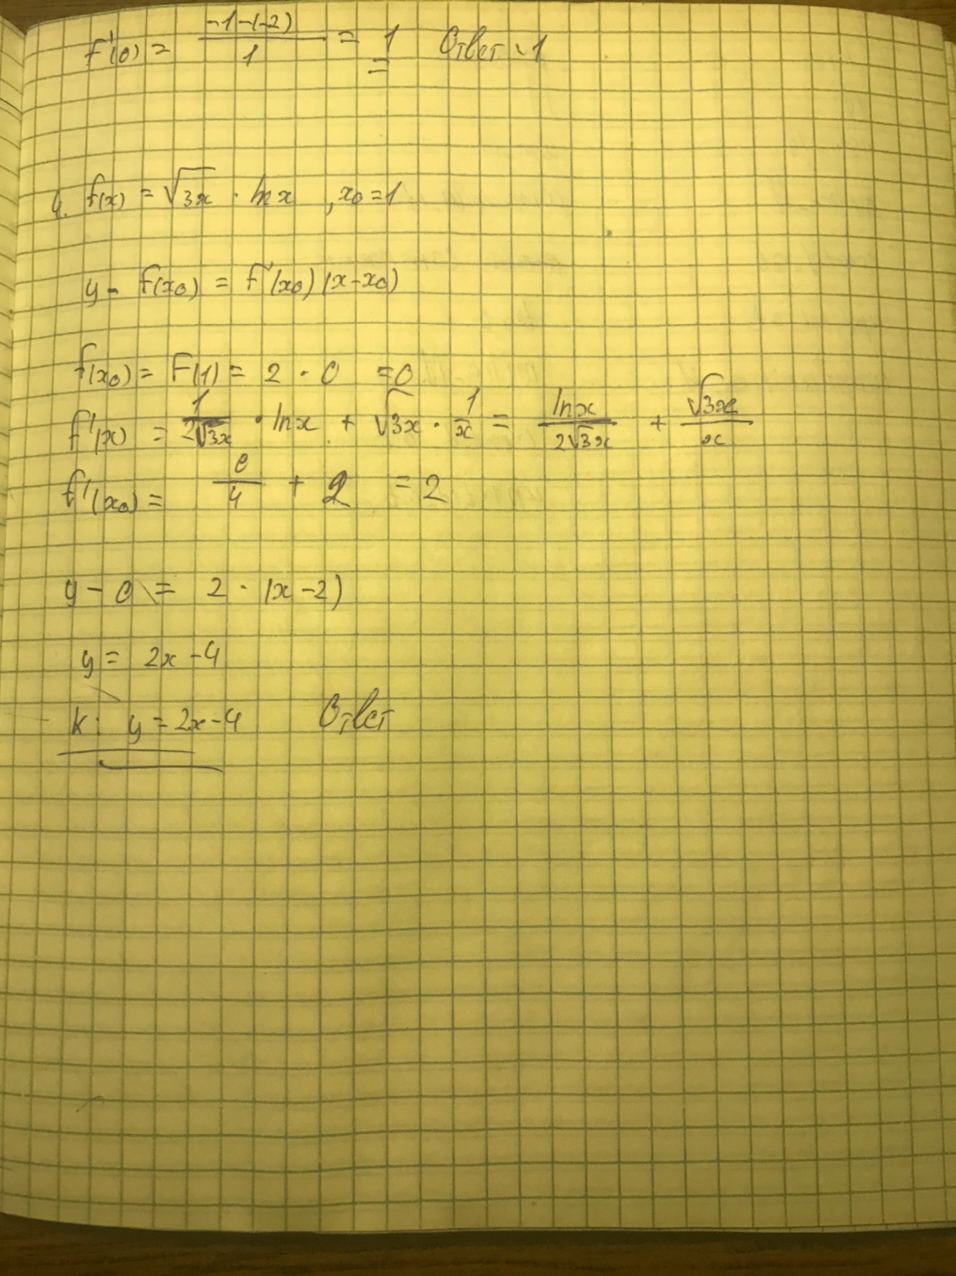 f'(0) = (-1-(-2))/1 = 1 Ответ: 1
4. f(x) = √3x · ln x , x0 = 1
y - f(x0) = f'(x0) (x-x0)
f(x0) = F(1) = 2 · 0 = 0
f'(x) = 1/(2√3x) · ln x + √3x · 1/x = ln x/(2√3x) + √3x/x
f'(x0) = 0/4 + 2 = 2
y - 0 = 2 · (x-2)
y = 2x-4
k: y = 2x-4 Ответ